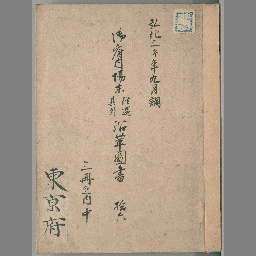 弘化三午年九月調
御府内場末往還
其外沿革圖書 拾六
三冊之内中
東京府